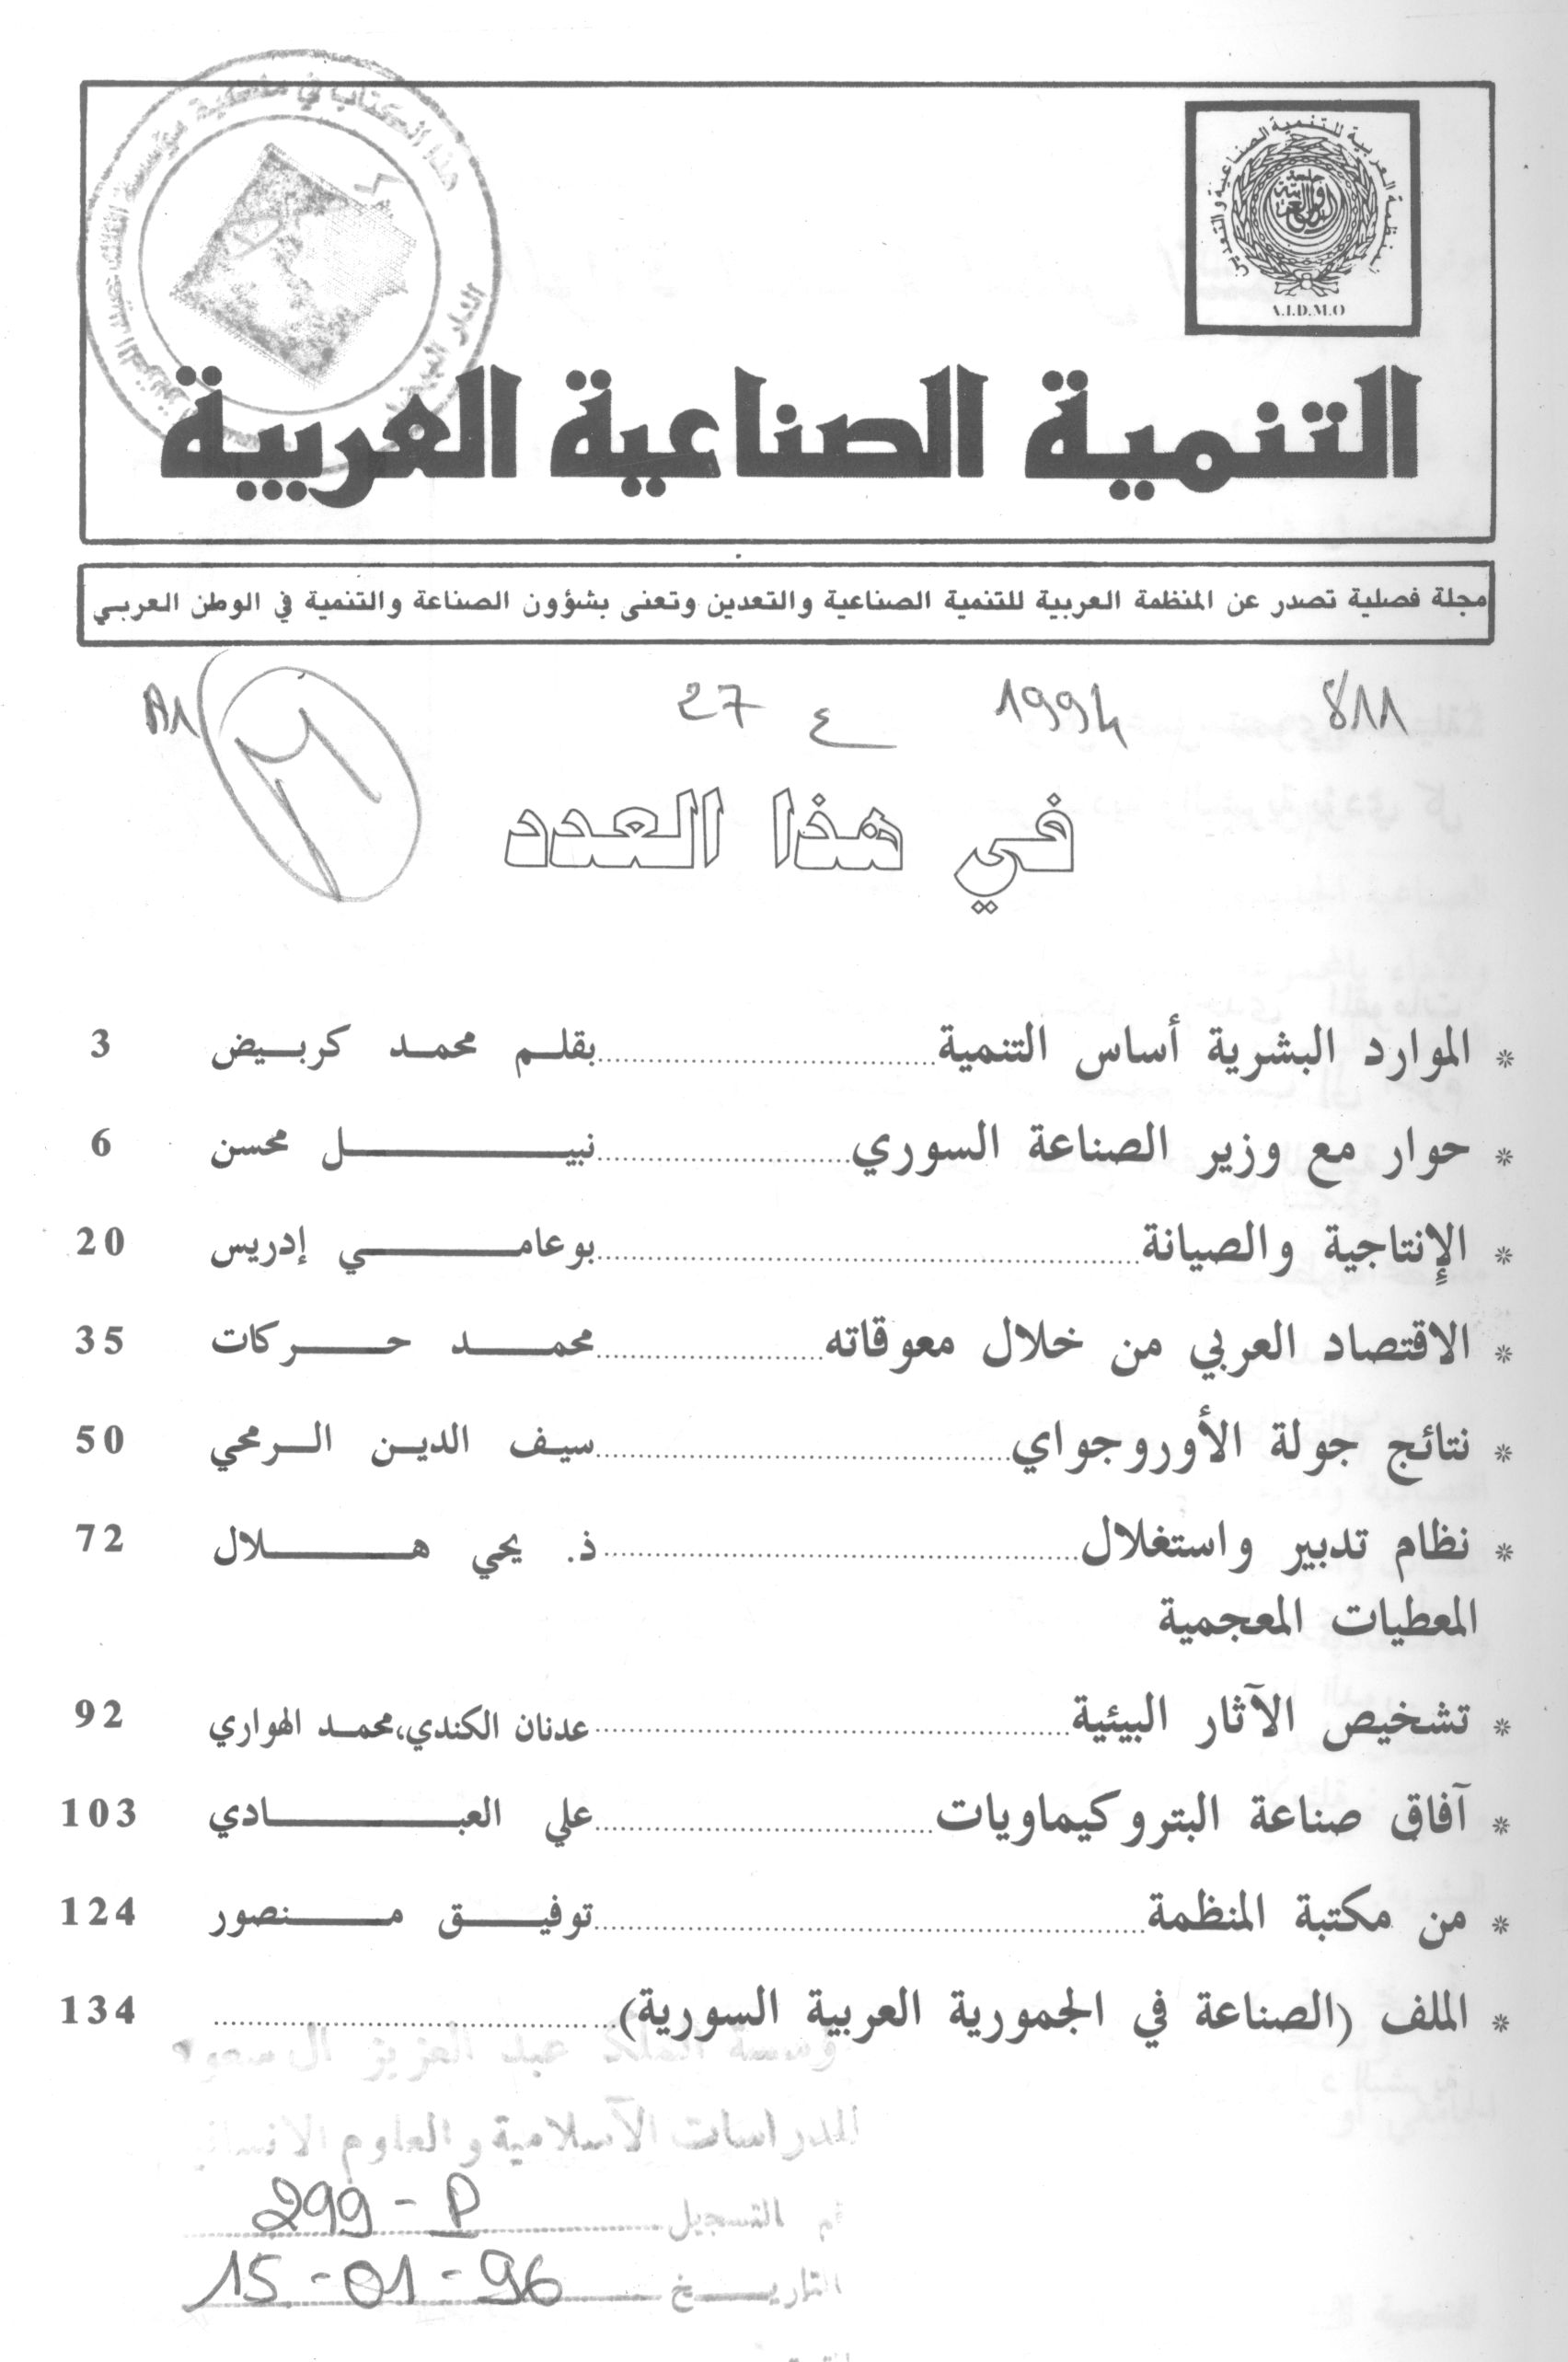 هذا الكتاب في ملكية مؤسسة الملك عبد العزيز
المنظمة العربية للتنمية الصناعية والتعدين
A.I.D.M.O
التنمية الصناعية العربية
مجلة فصلية تصدر عن المنظمة العربية للتنمية الصناعية والتعدين وتعنى بشؤون الصناعة والتنمية في الوطن العربي
811 1994 ع 27 A1
في هذا العدد
* الموارد البشرية أساس التنمية بقلم محمد كربيض 3
* حوار مع وزير الصناعة السوري نبيل محسن 6
* الإنتاجية والصيانة بوعامي إدريس 20
* الاقتصاد العربي من خلال معوقاته محمد حركات 35
* نتائج جولة الأوروجواي سيف الدين الرمحي 50
* نظام تدبير واستغلال ذ. يحي هلال 72
المعطيات المعجمية
* تشخيص الآثار البيئية عدنان الكندي، محمد الهواري 92
* آفاق صناعة البتروكيماويات علي العبادي 103
* من مكتبة المنظمة توفيق منصور 124
* الملف (الصناعة في الجمورية العربية السورية) 134
ؤسسة الملك عبد العزيز ال سعود
للدراسات الاسلامية والعلوم الانساني
م التسجيل 299-P
التاريخ 15-01-96